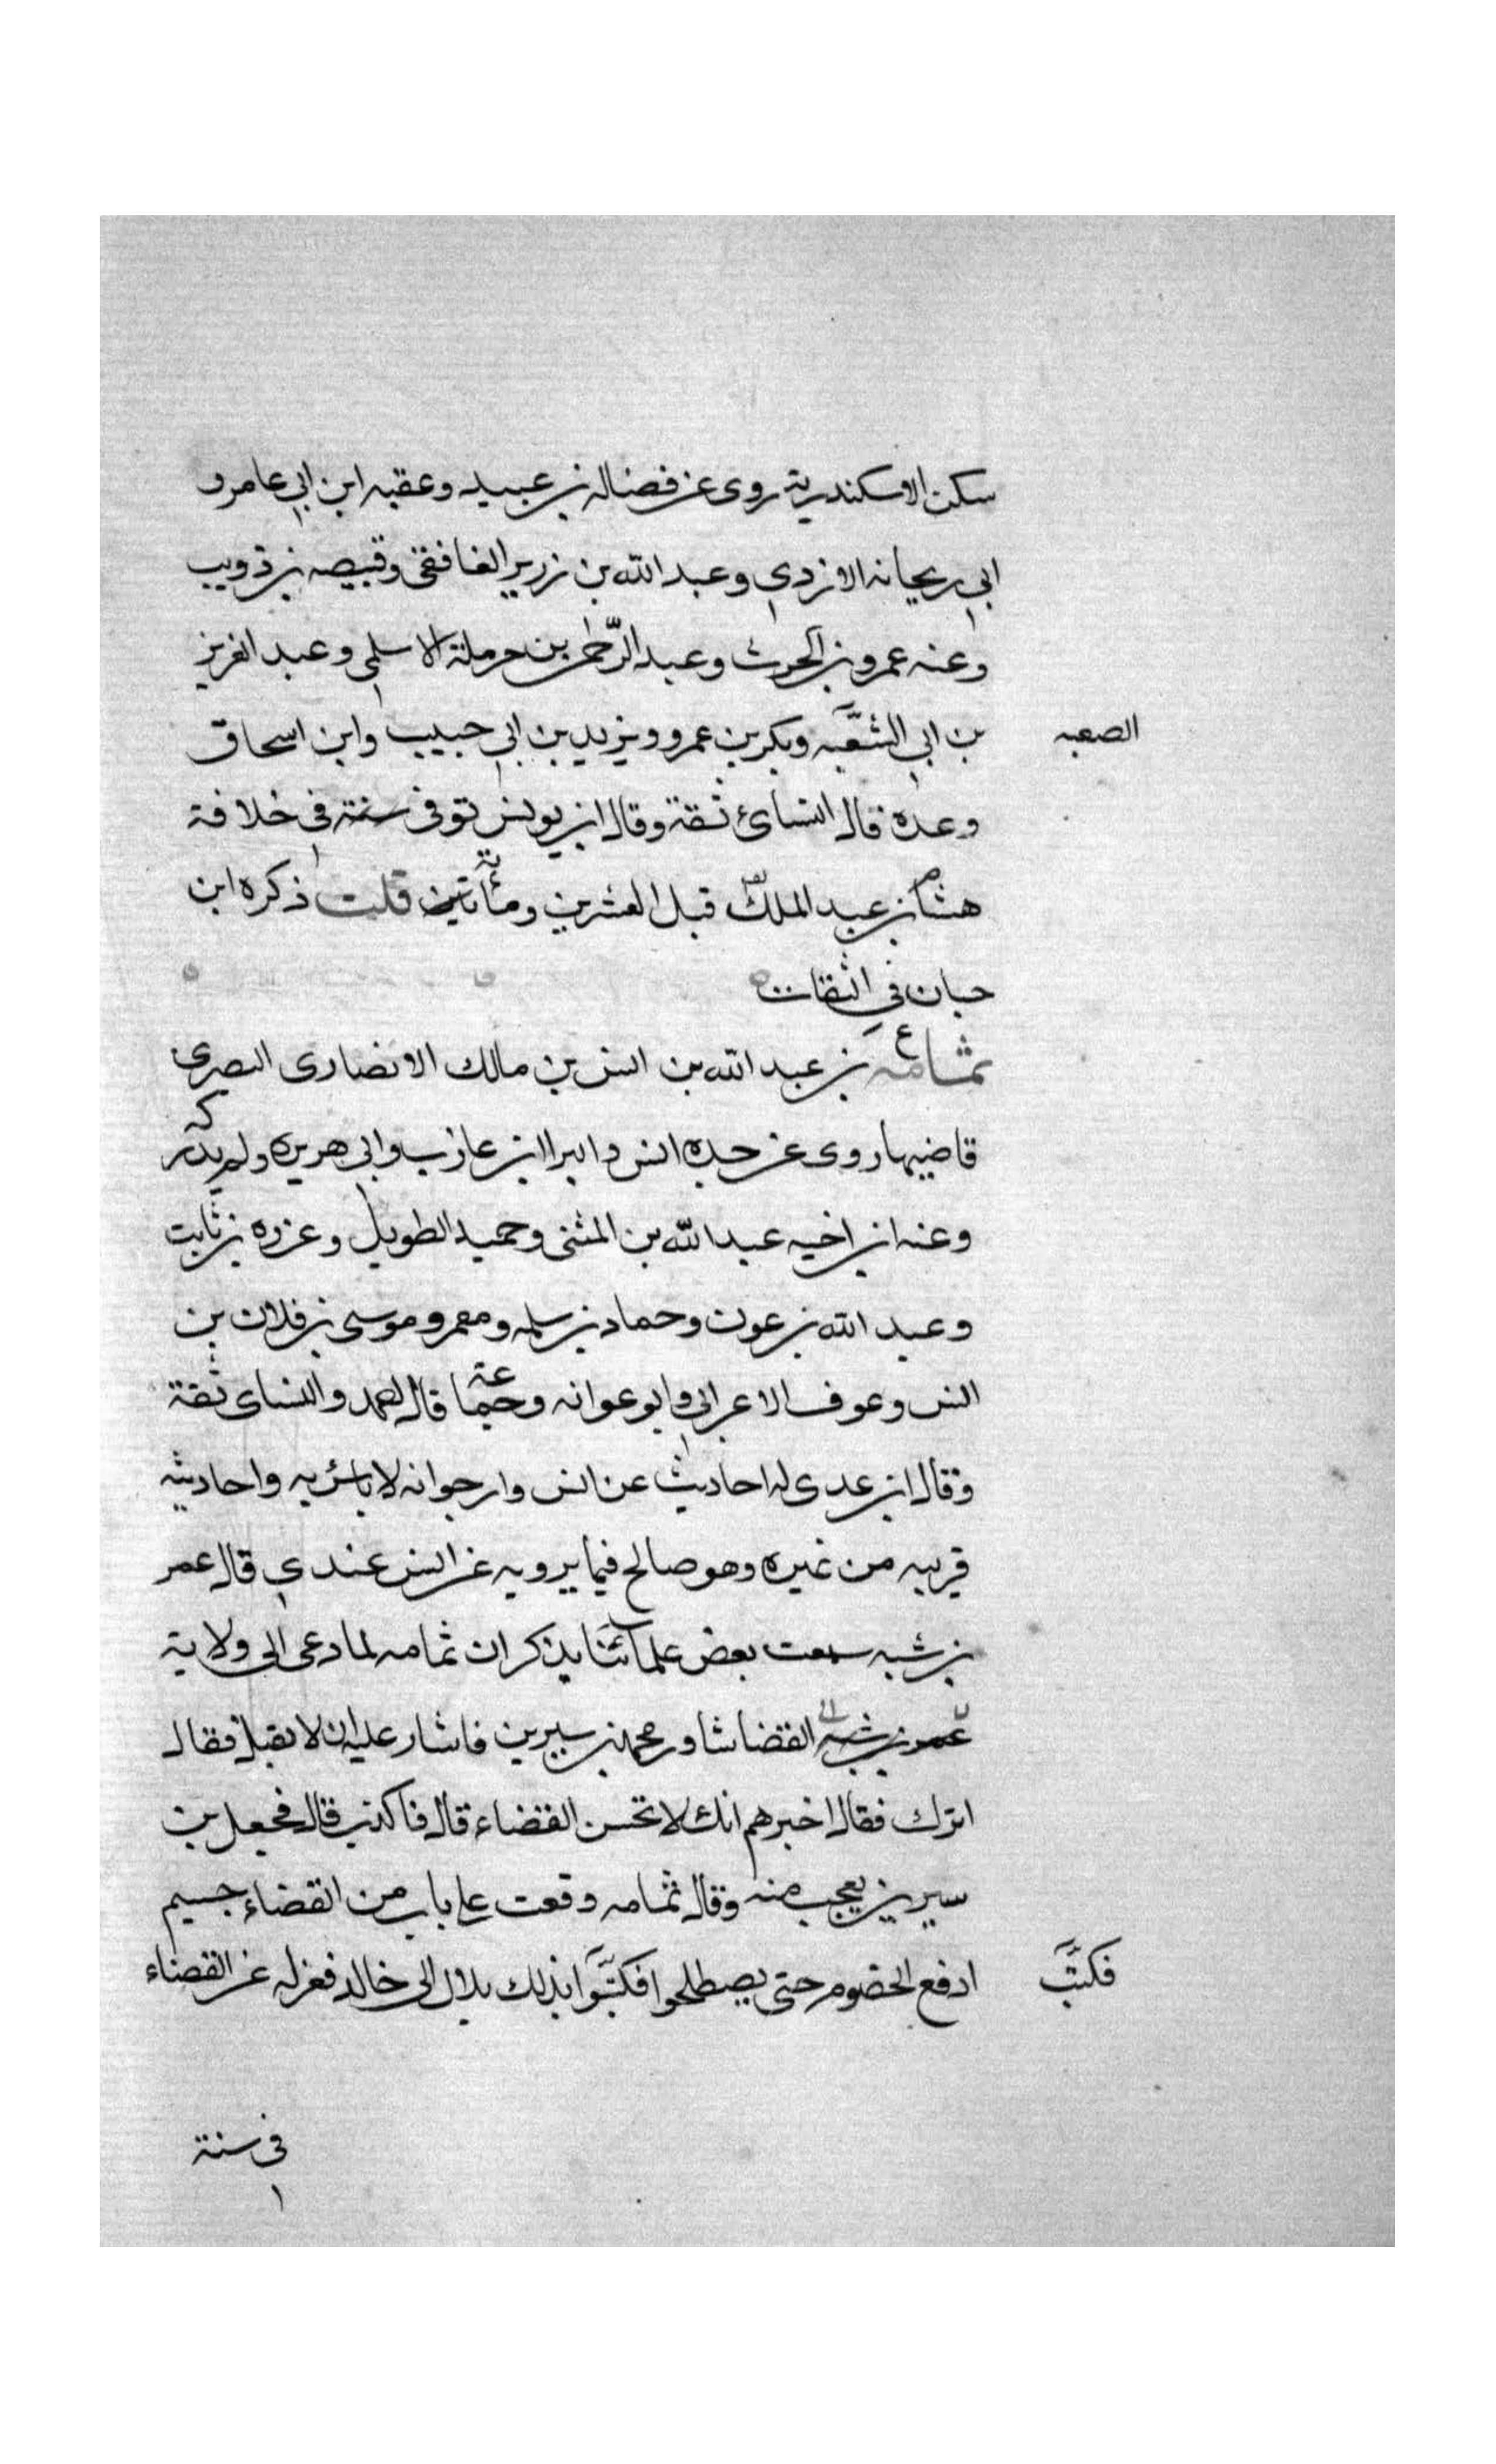 سكن الاسكندرية روى عن فضاله بن عبيد وعقبه ابن ابي عامر و
ابي ريحانه الازدي وعبد الله بن زرير الغافقي وقبيصه بن ذويب
وعنه عمرو بن الحرث وعبد الرحمن بن حرملة الاسلمي وعبد العزيز
بن ابي الشعبه وبكر بن عمرو ويزيد بن ابي حبيب وابن اسحاق
الصعبه
وعده قال النسائ ثقة وقال ابن يونس توفى سنة في خلافة
هشام بن عبد الملك قبل العشرين ومأية قلت ذكره ابن
حبان في الثقات
ع
ثمامه بن عبد الله بن انس بن مالك الانصارى البصرى
قاضيها روى عن جده انس والبرا ابن عازب وابى هريره ولم يدركه
وعنه ابن اخيه عبد الله بن المثنى وحميد الطويل وعزره بن ثابت
وعبد الله بن عون وحماد بن سلمه ومعمر وموسى بن فلان بن
انس وعوف الاعرابى وابو عوانه وجماعة قال احمد والنساى ثقة
وقال ابن عدى له احاديث عن انس وارجو انه لا باس به واحاديثه
قريبه من غيره وهو صالح فيما يرويه عن انس عندي قال عمر
بن شبه سمعت بعض علمائنا يذكر ان ثمامه لما دعى الى ولاية
القضا شاور محمد بن سيرين فاشار عليه ان لا يقبل فقال
اترك فقال اخبرهم انك لا تحسن القضاء قال فاكذب قال فجعل بن
سيرين يعجب منه وقال ثمامه وقعت على باب من القضاء جسيم
ادفع الخصوم حتى يصطلحوا فكتبوا بذلك بلال الى خالد فعزله عن القضاء
فكتب
فى سنة